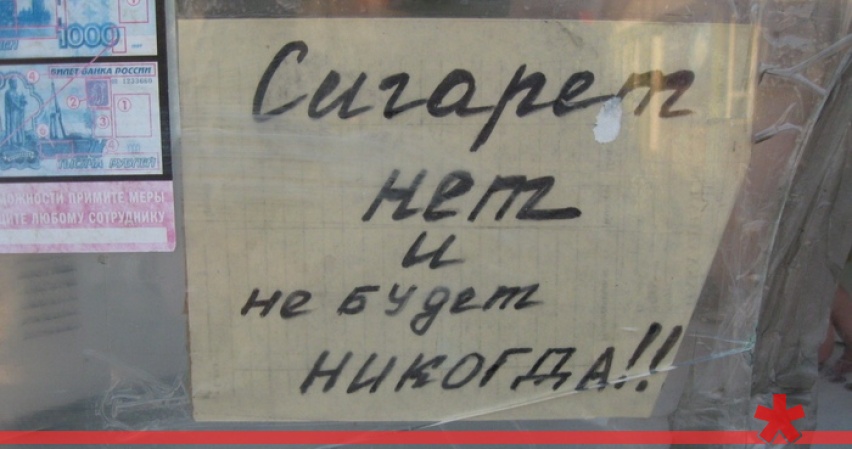 1000
БИЛЕТ БАНКА РОССИИ
4
2
1
3
4
ТЫСЯЧА РУБЛЕЙ
ПРИМИТЕ МЕРЫ
ЛЮБОМУ СОТРУДНИКУ
Сигарет
нет
и
не будет
НИКОГДА!!